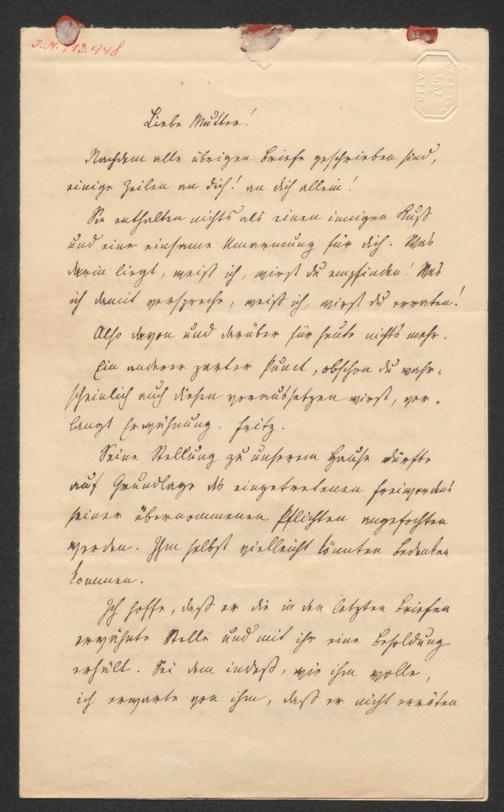 I.N. 113.948
Liebe Mutter!
Nachdem alle übrigen Briefe geschrieben sind,
einige Zeilen an dich! an dich allein!
Sie enthalten nichts als einen innigen Kuß
und eine einsame Umarmung für dich. Was
darin liegt, weiß ich, wirst du empfinden! Was
ich damit verspreche, weiß ich, wirst du erraten!
Also davon und darüber für heute nichts mehr.
Ein anderer zarter Punct, obschon du wahr-
scheinlich auch diesen voraussetzen wirst, ver-
langt Erwähnung. Fritz.
Seine Stellung zu unserem Hause dürfte
auf Grundlage des eingetretenen Freiwerdens
seiner übernommenen Pflichten angefochten
werden. Ihm selbst vielleicht könnten Bedenken
kommen.
Ich hoffe, daß er die in den letzten Briefen
erwähnte Stelle und mit ihr eine Besoldung
erhält. Sei dem indeß, wie ihm wolle,
ich erwarte von ihm, daß er nicht erröten